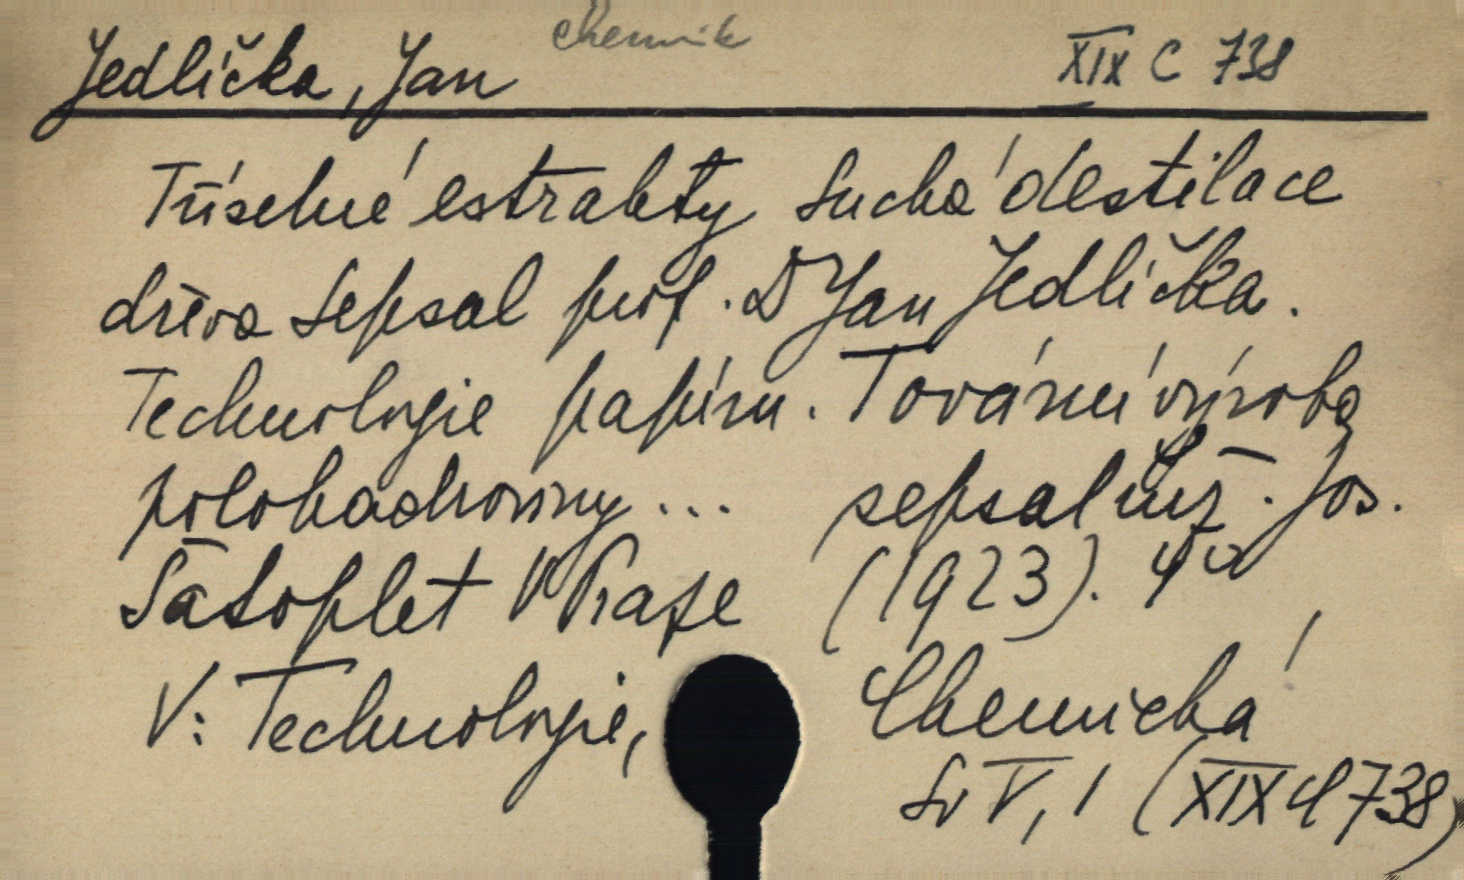 Jedlička, Jan chemik XIX C 738
Tříselné estrakty Suchá destilace
dřeva Sepsal prof. Dr Jan Jedlička.
Technologie papíru. Tovární výroba
polokadroviny... sepsal Inž. Jos.
Šátoplet V Praze (1923). 4°
V: Technologie, Chemická
Sv V, 1 (XIX C 738)